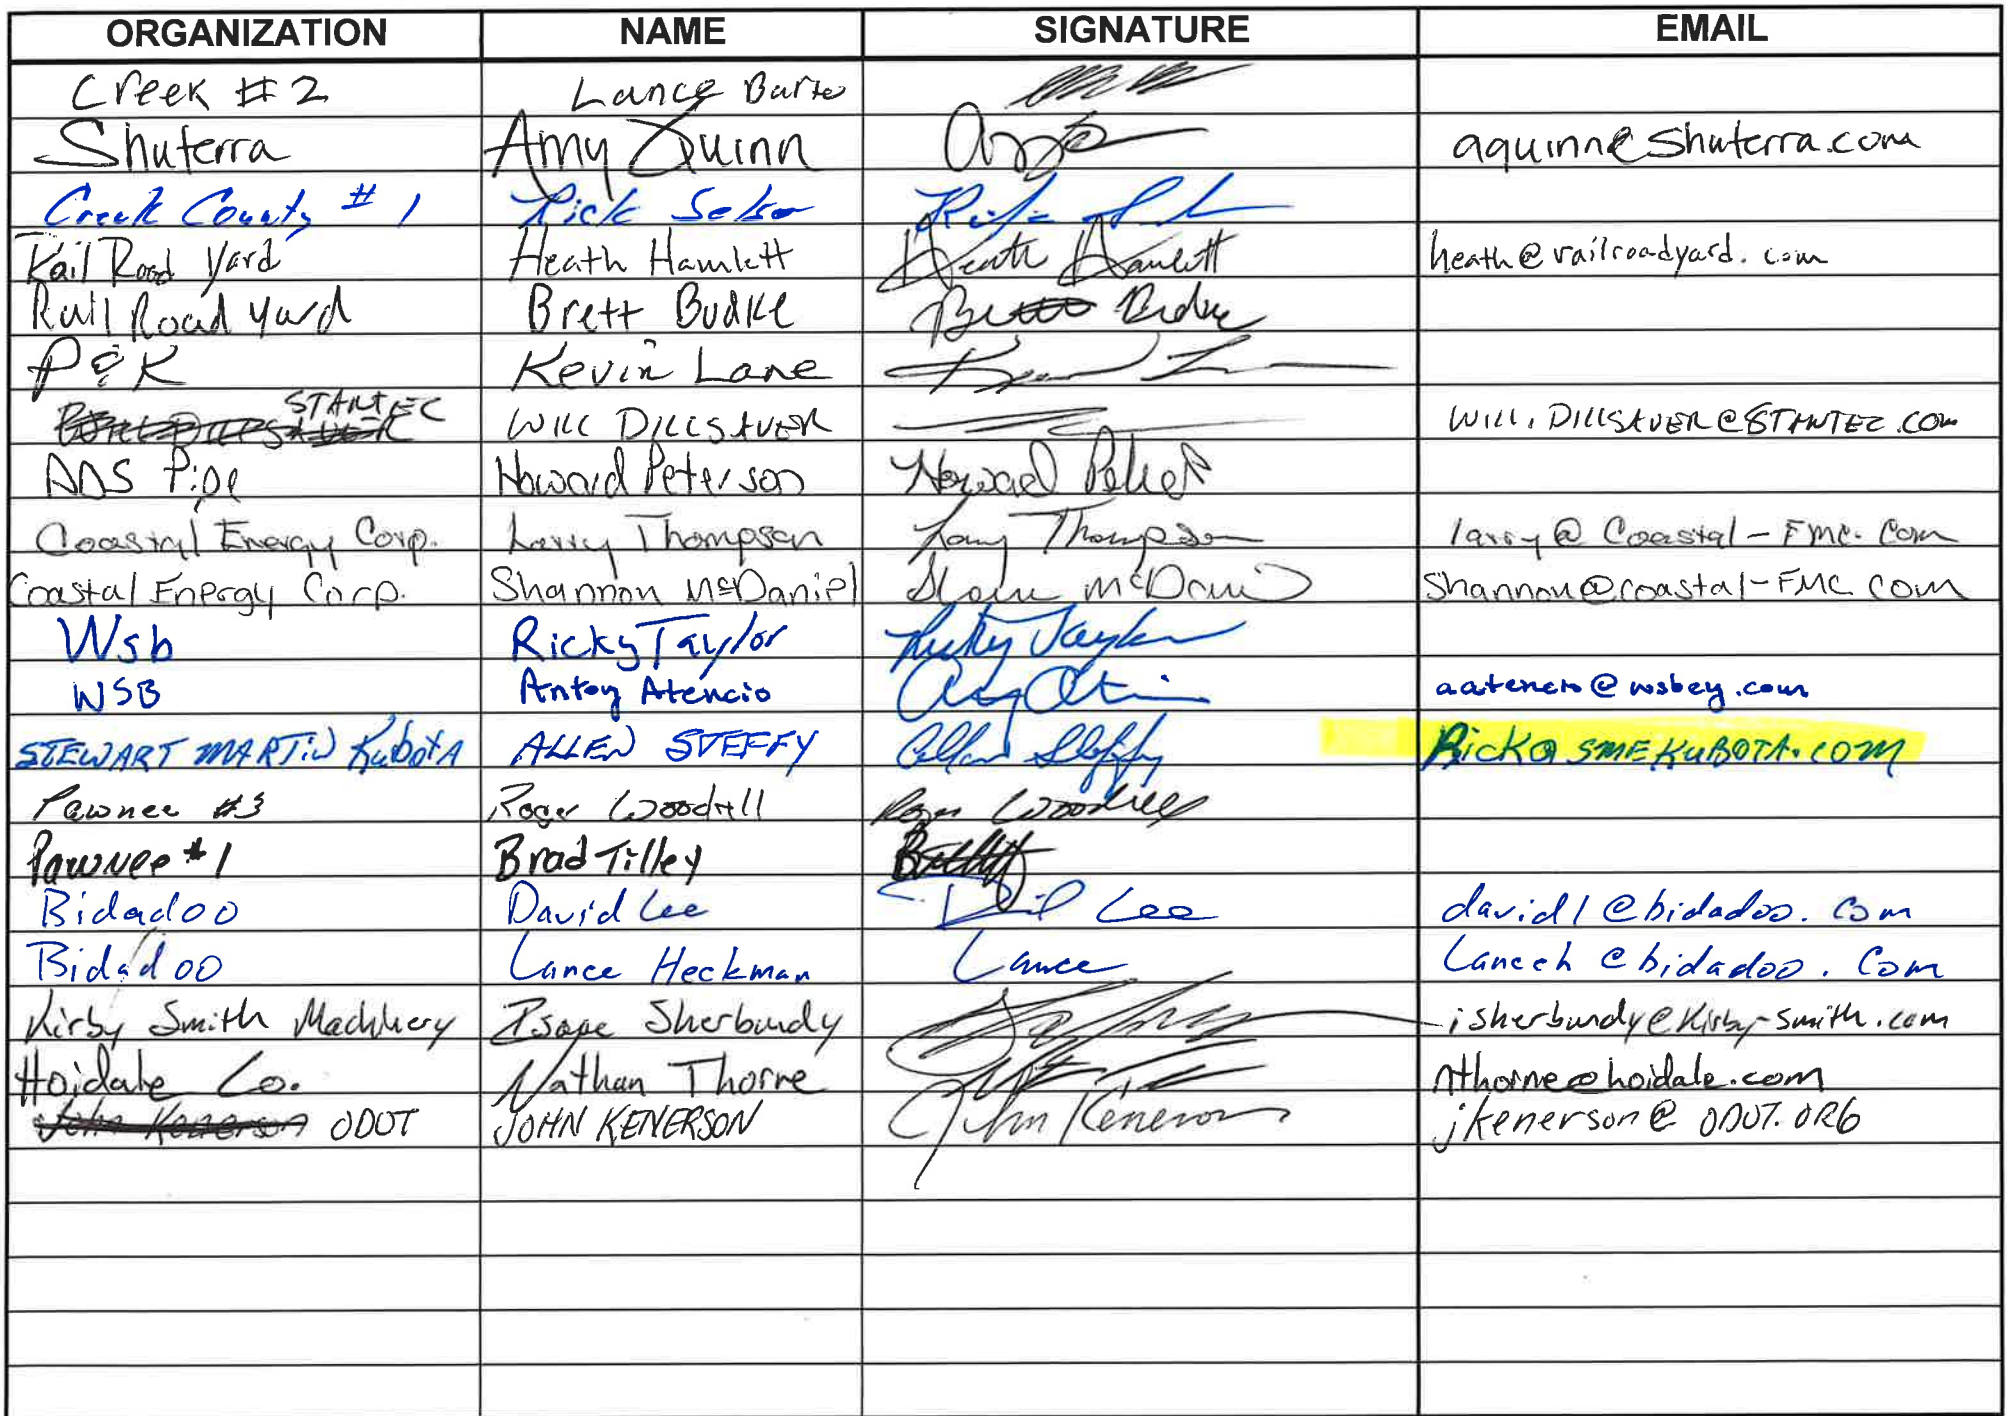 ORGANIZATION NAME SIGNATURE EMAIL
Creek #2 Lance
Shuterra Amy Quinn aquinn@shuterra.com
Creek County #1 Rick
Rail Road Yard Heath Hamlett Heath Hamlett heath@railroadyard.com
Rail Road Yard Brett Budke Brett Budke
P&K Kevin Lane
STANTEC WILL DILLSAVER WILL.DILLSAVER@STANTEC.COM
ADS Pipe Howard Peterson Howard
Coastal Energy Corp. Larry Thompson Larry Thompson larry@Coastal-FMC.Com
Coastal Energy Corp. Shannon McDaniel McDaniel Shannon@coastal-FMC.COM
Wsb Ricky Taylor Ricky Taylor
WSB Antoy Atencio
STEWART MARTIN KubotA ALLEN STEFFY Allen Steffy Rick@SMEKUBOTA.COM
Pawnee #3 Roger Woodall Roger
Pawnee #1 Brad Tilley
Bidadoo David Lee David Lee davidl@bidadoo.com
Bidadoo Lance Heckman Lance Lanceh@bidadoo.Com
Kirby Smith Machinery Sherbundy isherbundy@Kirby-smith.com
Hoidale Co. Nathan Thorne nthorne@hoidale.com
John Kenerson ODOT JOHN KENERSON John Kenerson jkenerson@ODOT.ORG